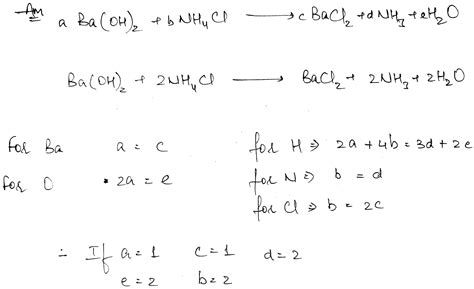 Ans a Ba(OH)₂ + b NH₄Cl ⟶ c BaCl₂ + d NH₃ + e H₂O
Ba(OH)₂ + 2NH₄Cl ⟶ BaCl₂ + 2NH₃ + 2H₂O
For Ba a = c
for O • 2a = e
for H ⇒ 2a + 4b = 3d + 2e
for N ⇒ b = d
for Cl ⇒ b = 2c
∴ If a = 1 c = 1 d = 2
e = 2 b = 2